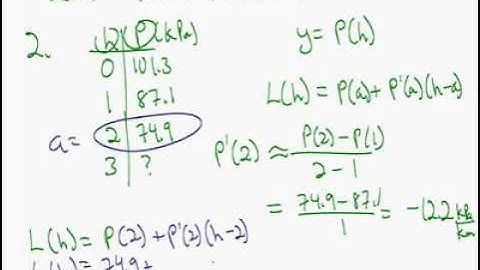 2.
(h) P(kPa)
0 101.3
1 87.1
a = 2 74.9
3 ?
y = P(h)
L(h) = P(a) + P'(a)(h-a)
P'(2) ≈ P(2) - P(1) / 2 - 1
= 74.9 - 87.1 / 1 = -12.2 kPa/km
L(h) = P(2) + P'(2)(h-2)
L(h) = 74.9 +